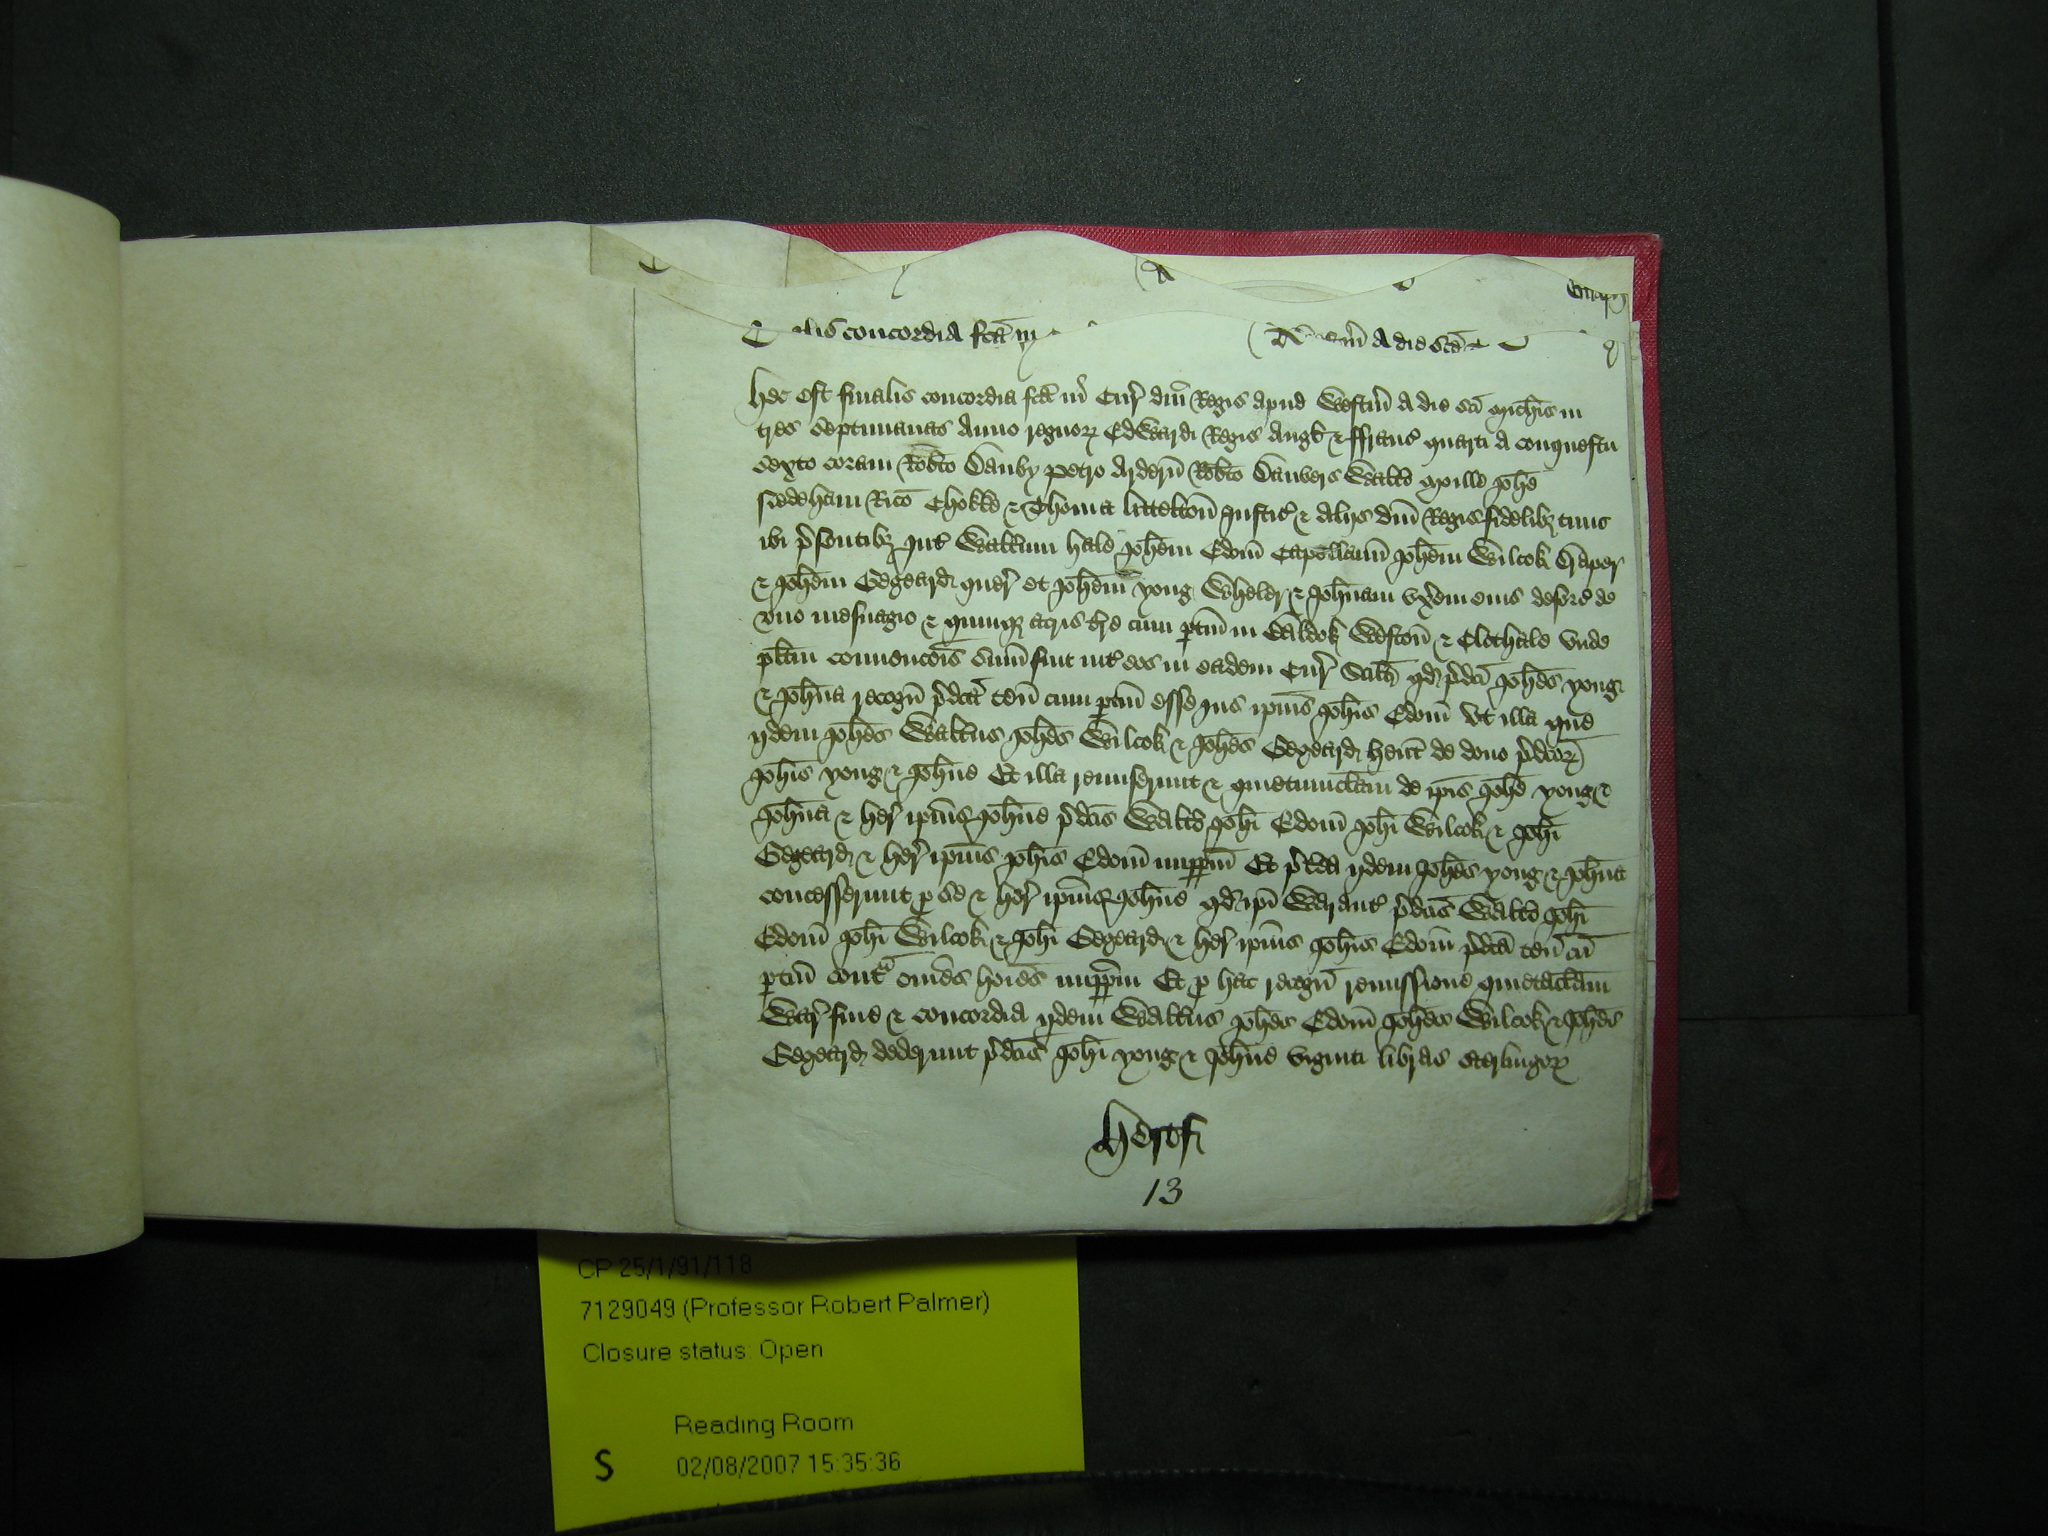 lis concordia fc̄a in
A die Sc̄e
Hec est finalis concordia fc̄a in Cur̄ dn̄i Regis apud Westm̄ A die Sc̄i Mich̄is in
tres Septimanas Anno regnoꝝ Edwardi Regis Angl̄ & Ffranc̄ quarti a conquestu
Sexto coram Rob̄to Danby Petro Ardern̄ Rob̄to Danvers Walt̄o Moille Joh̄e
Nedeham Ric̄o Chokke & Thoma Littelton̄ Justic̄ & alijs dn̄i Regis fidelibꝫ tunc
ibi p̄sentibꝫ Int̄ Walt̄um Hale Joh̄em Edom̄ Capellanū Joh̄em Wilcok Draper
& Joh̄em Gegeard quer̄ et Joh̄em Yong Wheler & Joh̄nam vx̄em eius deforc̄ de
vno mesuagio & quinqꝫ acris t̄re cum ꝑtin̄ in Baldok Weston̄ & Clothale vnde
pl̄itm̄ conuenc̄ois Sum̄ fuit int̄ eos in eadem Cur̄ Scilt̄ qd̄ p̄dc̄i Joh̄es Yong
& Joh̄na recogn̄ p̄dc̄a ten̄ cum ꝑtin̄ esse Ius ip̄ius Joh̄is Edom̄ Vt illa que
ijdem Joh̄es Walt̄us Joh̄es Wilcok & Joh̄es Gegeard hent̄ de dono p̄dc̄oꝝ
Joh̄is Yong & Joh̄ne Et illa remiserunt & quietumclam̄ de ip̄is Joh̄e Yong &
Joh̄na & her̄ ip̄ius Joh̄ne p̄dc̄is Walt̄o Joh̄i Edom̄ Joh̄i Wilcok & Joh̄i
Gegeard & her̄ ip̄ius Joh̄is Edom̄ imꝑꝑm̄ Et p̄t̄ea ijdem Joh̄es Yong & Joh̄na
concesserunt ꝑ se & her̄ ip̄ius Joh̄ne qd̄ ip̄i Warant̄ p̄dc̄is Walt̄o Joh̄i
Edom̄ Joh̄i Wilcok & Joh̄i Gegeard & her̄ ip̄ius Joh̄is Edom̄ p̄dc̄a ten̄ cū
ꝑtin̄ contᵃ om̄es hoīes imꝑꝑm̄ Et ꝑ hac recogn̄ remissione quietaclam̄
War̄ fine & concordia ijdem Walt̄us Joh̄es Edom̄ Joh̄es Wilcok & Joh̄es
Gegeard dederunt p̄dc̄is Joh̄i Yong & Joh̄ne viginti libras sterlingoꝝ
Hertf
13
CP 25/1/91/118
7129049 (Professor Robert Palmer)
Closure status: Open
Reading Room
S 02/08/2007 15:35:36